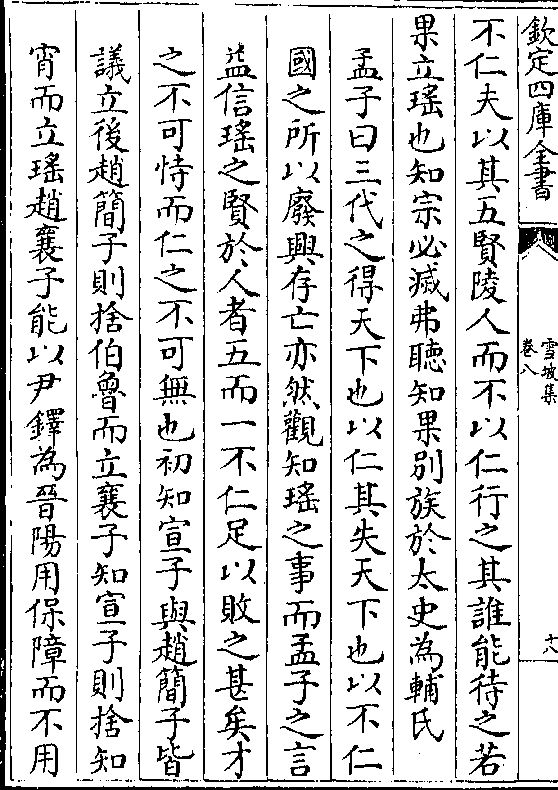 欽定四庫全書
雪坡集
卷八
十八
不仁夫以其五賢陵人而不以仁行之其誰能待之若
果立瑤也知宗必滅弗聽知果別族於太史為輔氏
孟子曰三代之得天下也以仁其失天下也以不仁
國之所以廢興存亡亦然觀知瑤之事而孟子之言
益信瑤之賢於人者五而一不仁足以敗之甚矣才
之不可恃而仁之不可無也初知宣子與趙簡子皆
議立後趙簡子則捨伯魯而立襄子知宣子則捨知
宵而立瑤趙襄子能以尹鐸為晉陽用保障而不用